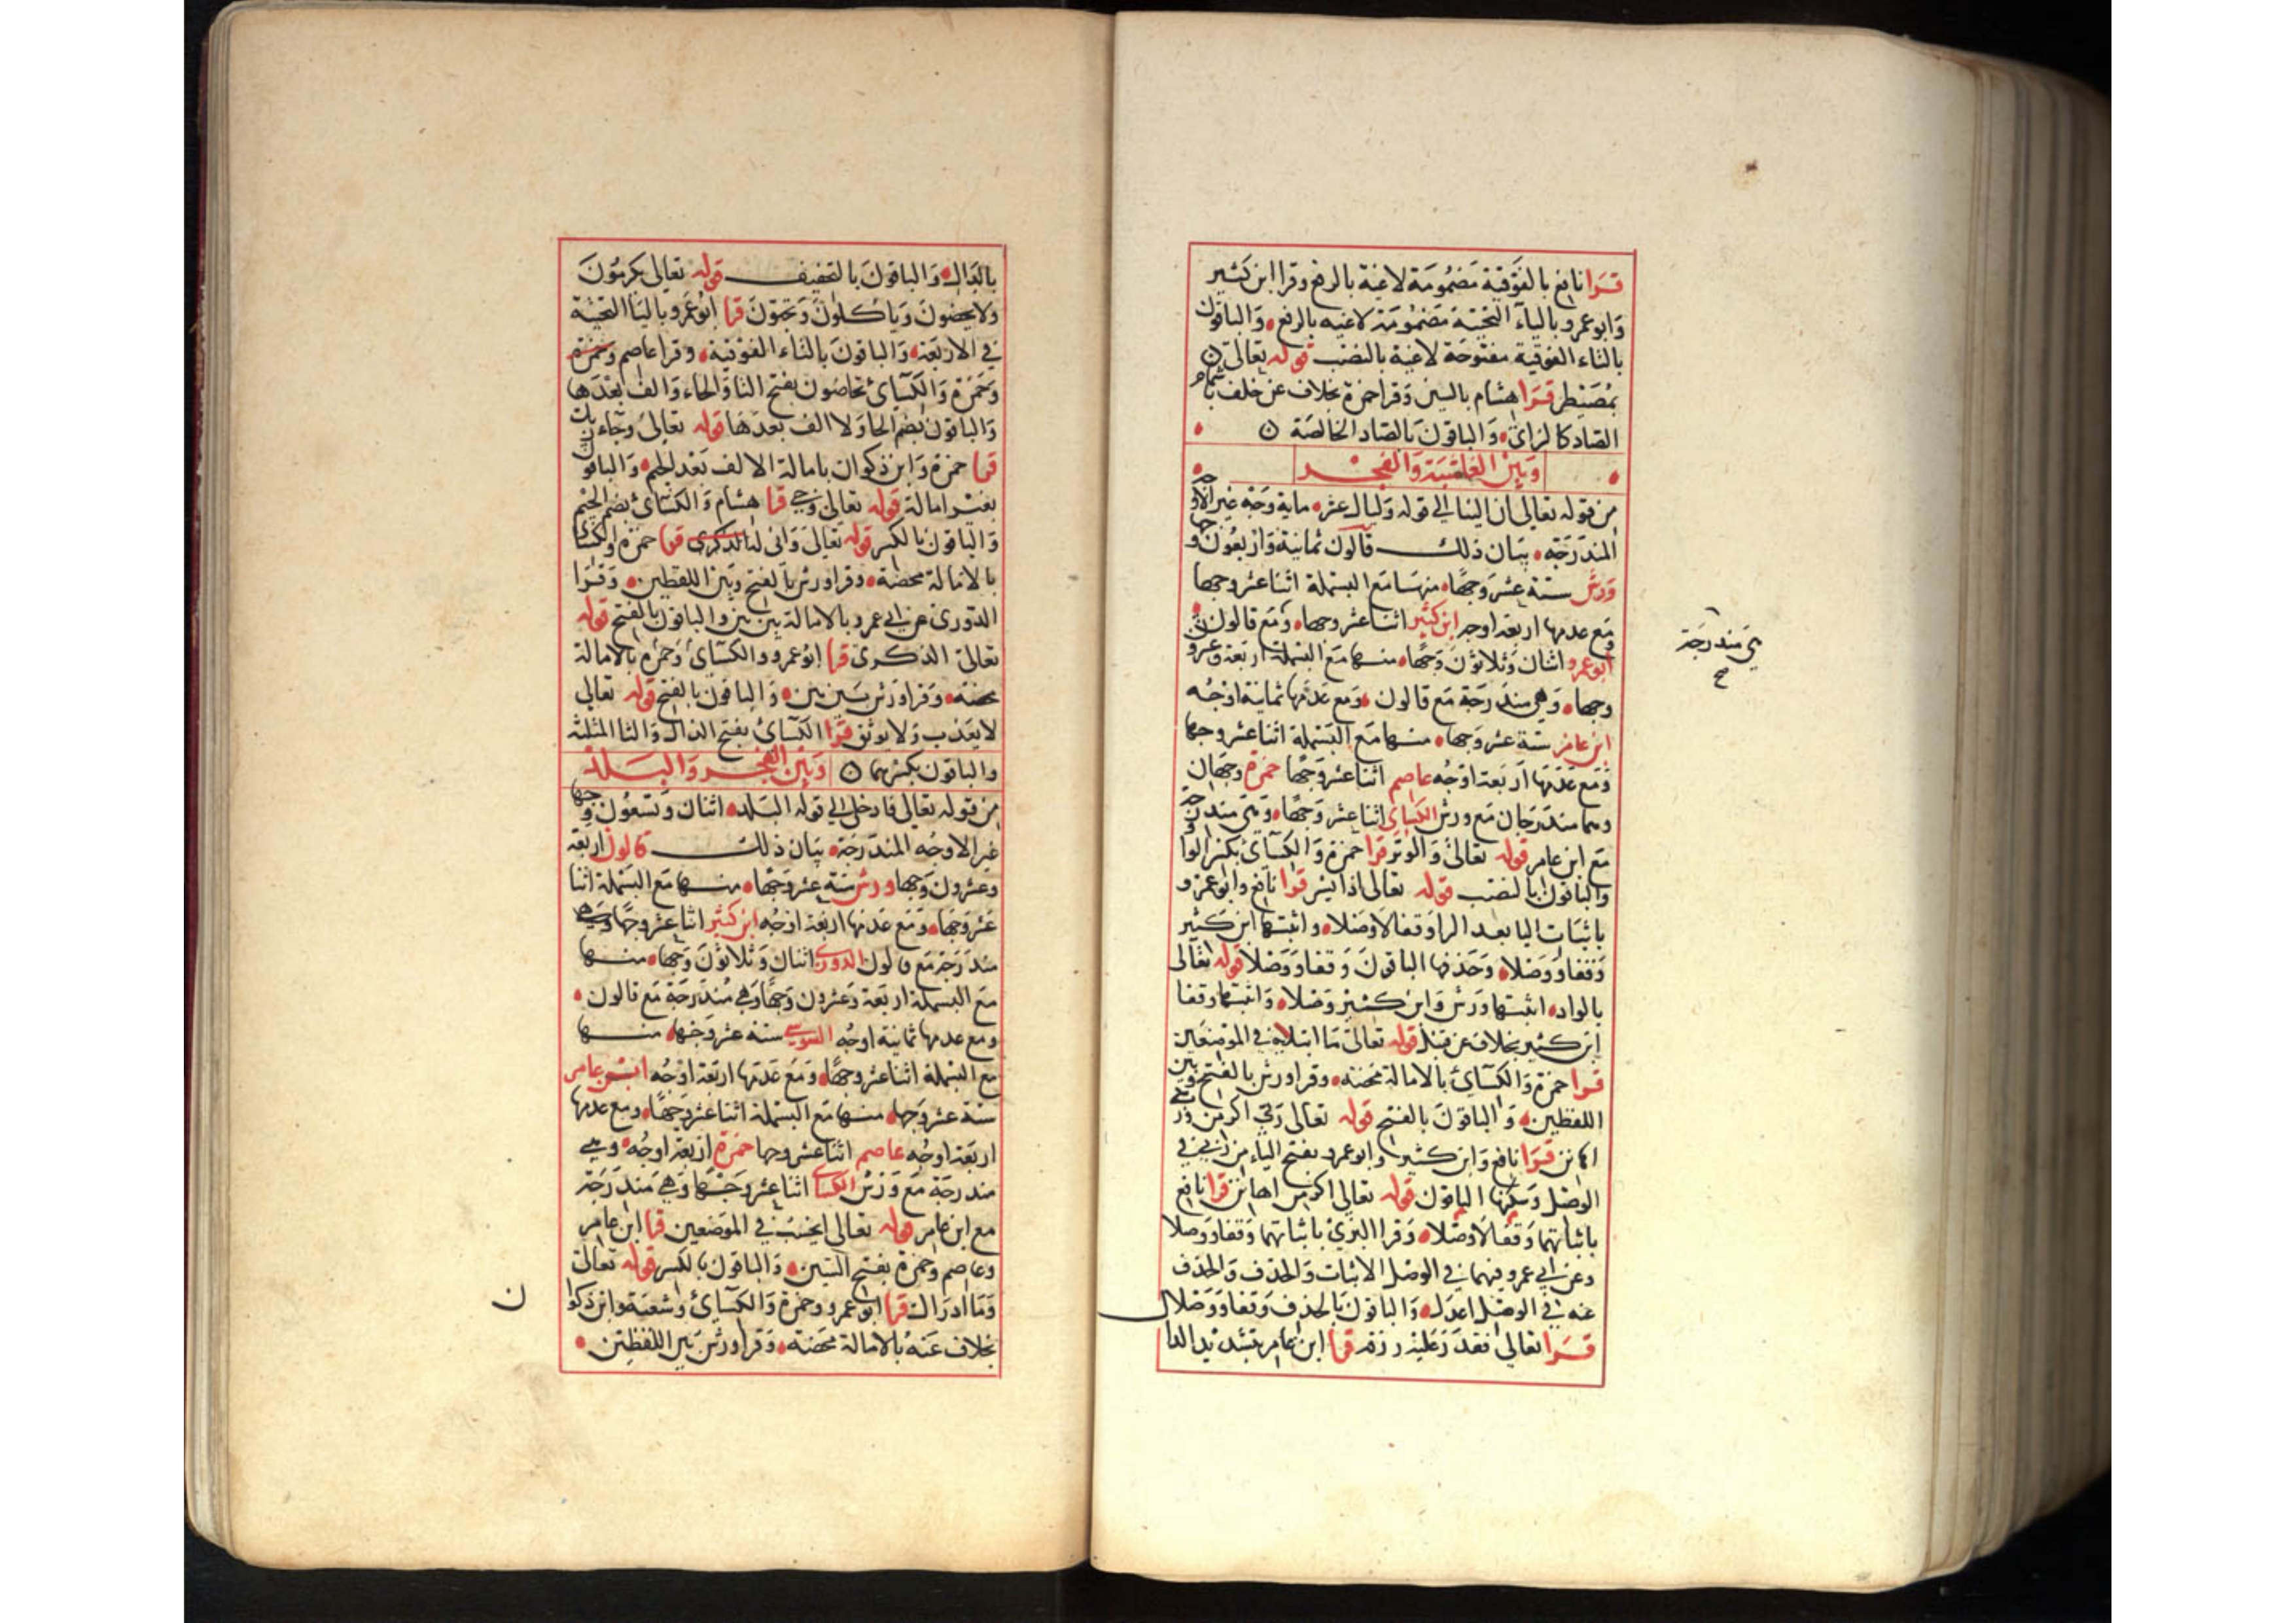 قرا نافع بالفوقية مضمومة لاغية بالرفع وقرا ابن كثير
وابو عمرو بالياء التحتية مضمومة لاغية بالرفع والباقون
بالتاء الفوقية مفتوحة لاغية بالنصب قوله تعالى
بمصيطر قرا هشام بالسين وقرا حمزة بخلاف عن خلف باشمام
الصاد كالزاى والباقون بالصاد الخالصة
وبين الغاشية والفجر
من قوله تعالى ان الينا الى قوله وليال عشر ماية وجه غير الاوجه
المندرجة بيان ذلك قالون ثمانية واربعون وجها
ورش ستة عشر وجها منها مع البسملة اثنا عشر وجها
ومع عدمها اربعة اوجه ابن كثير اثنا عشر وجها ومع قالون
هى مندرجة
صح
ابو عمرو اثنان وثلاثون وجها منها مع البسملة اربعة وعشرون
وجها وهى مندرجة مع قالون ومع عدمها ثمانية اوجه
ابن عامر ستة عشر وجها منها مع البسملة اثنا عشر وجها
ومع عدمها اربعة اوجه عاصم اثنا عشر وجها حمزة وجهان
وهما مندرجان مع ورش الكساى اثنا عشر وجها وهى مندرجة
مع ابن عامر قوله تعالى والوتر قرا حمزة والكساى بكسر الواو
والباقون بالنصب قوله تعالى اذا يسر قرا نافع وابو عمرو
باثبات اليا بعد الرا وقفا لا وصلا واثبتها ابن كثير
وقفا ووصلا وحذفها الباقون وقفا ووصلا قوله تعالى
بالواد اثبتها ورش وابن كثير وصلا واثبتها وقفا
ابن كثير بخلاف عن قنبل قوله تعالى ما ابتلاه فى الموضعين
قرا حمزة والكساى بالامالة محضة وقرا ورش بالفتح وبين
اللفظين والباقون بالفتح قوله تعالى ربى اكرمن ربى
اهانن قرا نافع وابن كثير وابو عمرو بفتح الياء من ربى فى
الوصل وسكنها الباقون قوله تعالى اكرمن اهانن قرا نافع
باثباتهما وقفا لا وصلا وقرا البزى باثباتهما وقفا ووصلا
وعن ابى عمرو فيهما فى الوصل الاثبات والحذف والحذف
عنه فى الوصل اعدل والباقون بالحذف وقفا ووصلا
قرا تعالى فقدر عليه رزقه قرا ابن عامر بتشديد الدا
بالدال والباقون بالتخفيف قوله تعالى يكرمون
ولا يحضون وياكلون ويحبون قرا ابو عمرو باليا التحتية
فى الاربعة والباقون بالتاء الفوقية وقرا عاصم وحمزة
وحمزة والكساى تحاضون بفتح التا والحاء والف بعدها
والباقون بضم الحا ولا الف بعدها قوله تعالى وجاء
قرا حمزة وابن ذكوان بامالة الالف بعد الجيم والباقون
بغير امالة قوله تعالى وجى قرا هشام والكساى بضم الجيم
والباقون بالكسر قوله تعالى وانى له الذكرى قرا حمزة والكساى
بالامالة محضة وقرا ورش بالفتح وبين اللفظين وقرا
الدورى عن ابى عمرو بالامالة بين بين والباقون بالفتح قوله
تعالى الذكرى قرا ابو عمرو والكساى وحمزة بالامالة
محضة وقرا ورش بين بين والباقون بالفتح قوله تعالى
لا يعذب ولا يوثق قرا الكساى بفتح الذال والثا المثلثة
والباقون بكسرهما وبين الفجر والبلد
من قوله تعالى فادخلى الى قوله البلد اثنان وتسعون وجها
غير الاوجه المندرجة بيان ذلك قالون اربعة
وعشرون وجها ورش ستة عشر وجها منها مع البسملة اثنا
عشر وجها ومع عدمها اربعة اوجه ابن كثير اثنا عشر وجها وهى
مندرجة مع قالون الدورى اثنان وثلاثون وجها منها
مع البسملة اربعة وعشرون وجها وهى مندرجة مع قالون
ومع عدمها ثمانية اوجه السوسى ستة عشر وجها منها
مع البسملة اثنا عشر وجها ومع عدمها اربعة اوجه ابن عامر
ستة عشر وجها منها مع البسملة اثنا عشر وجها ومع عدمها
اربعة اوجه عاصم اثنا عشر وجها حمزة اربعة اوجه وهى
مندرجة مع ورش الكساى اثنا عشر وجها وهى مندرجة
مع ابن عامر قوله تعالى ايحسب فى الموضعين قرا ابن عامر
وعاصم وحمزة بفتح السين والباقون بالكسر قوله تعالى
وما ادراك قرا ابو عمرو وحمزة والكساى وشعبة وابن ذكوان
بخلاف عنه بالامالة محضة وقرا ورش بين اللفظين